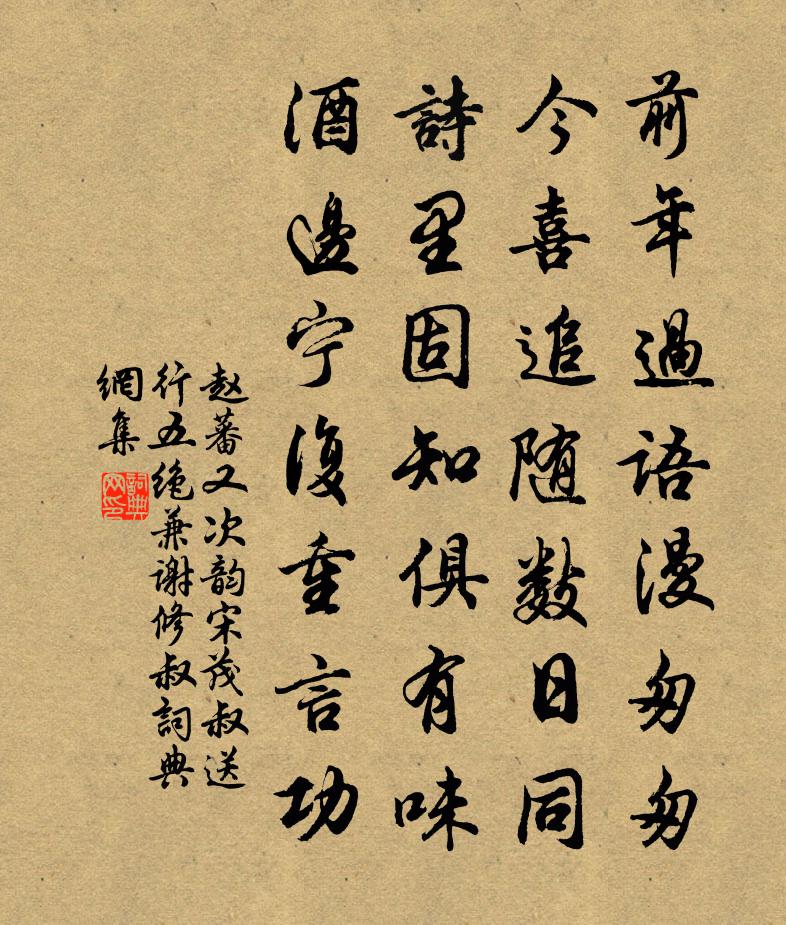 前年過語漫匆匆
今喜追随数日同
詩里固知俱有味
酒邊宁復重言功
赵蕃又次韵宋茂叔送
行五绝兼謝修叔詞典
網集
詞典
网印